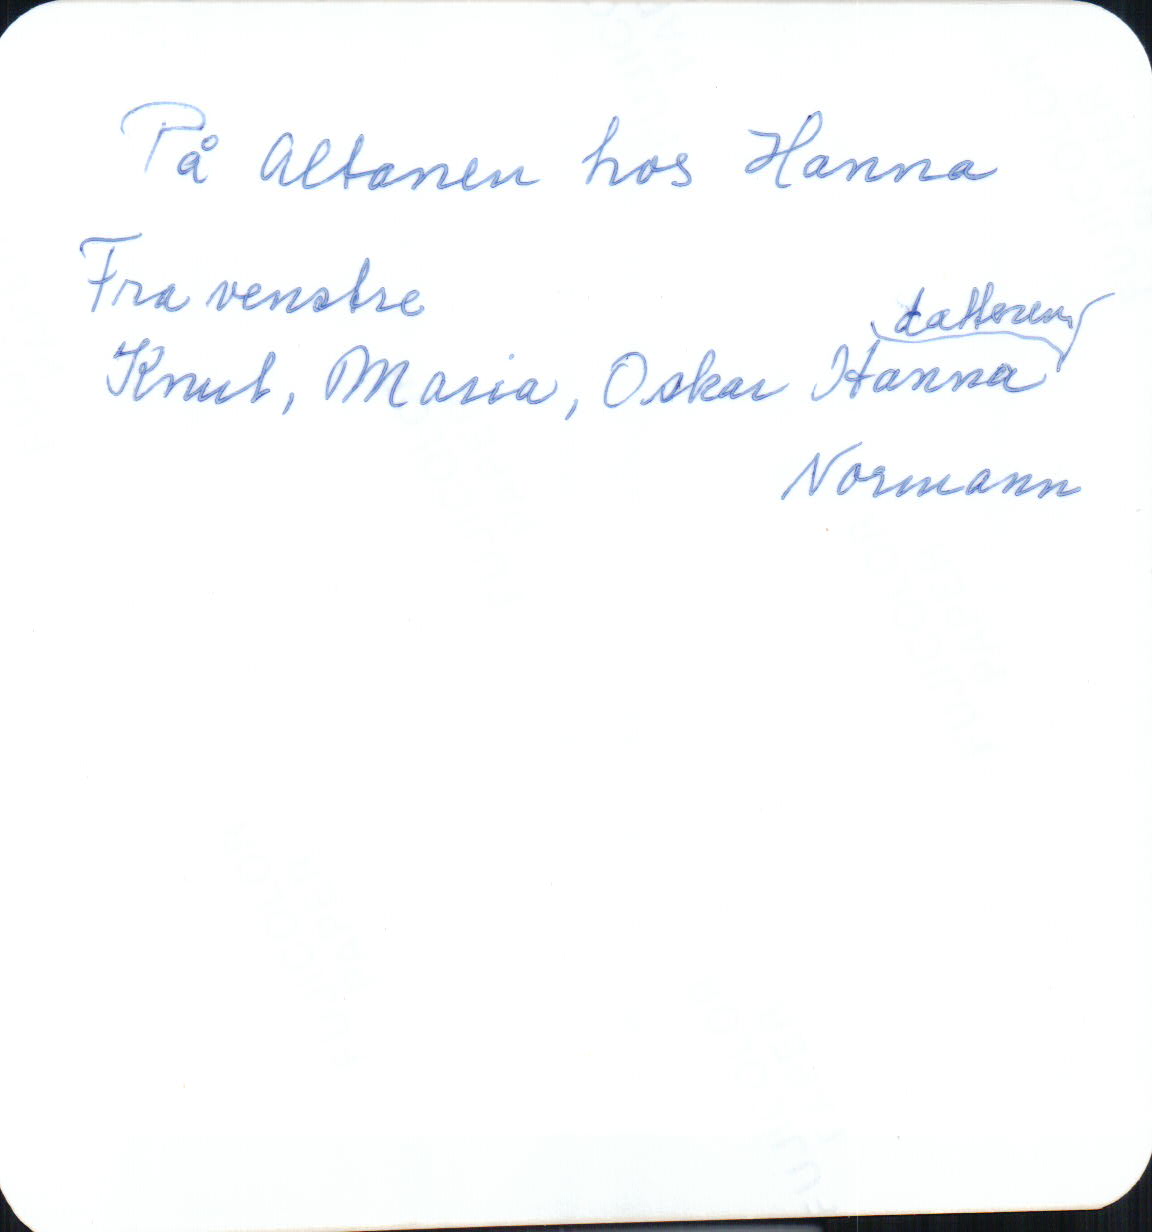 På Altanen hos Hanna
Fra venstre
datteren
Knut, Maria, Oskar Hanna
Normann